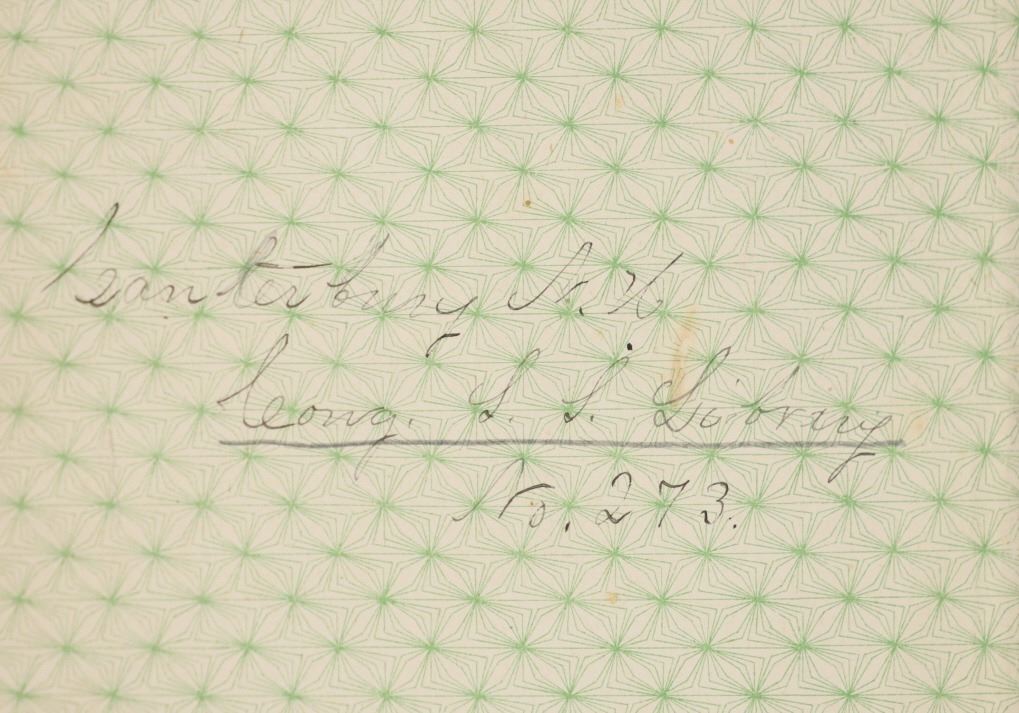 Canterbury N. H.
Cong. S. S. Library
No. 273.